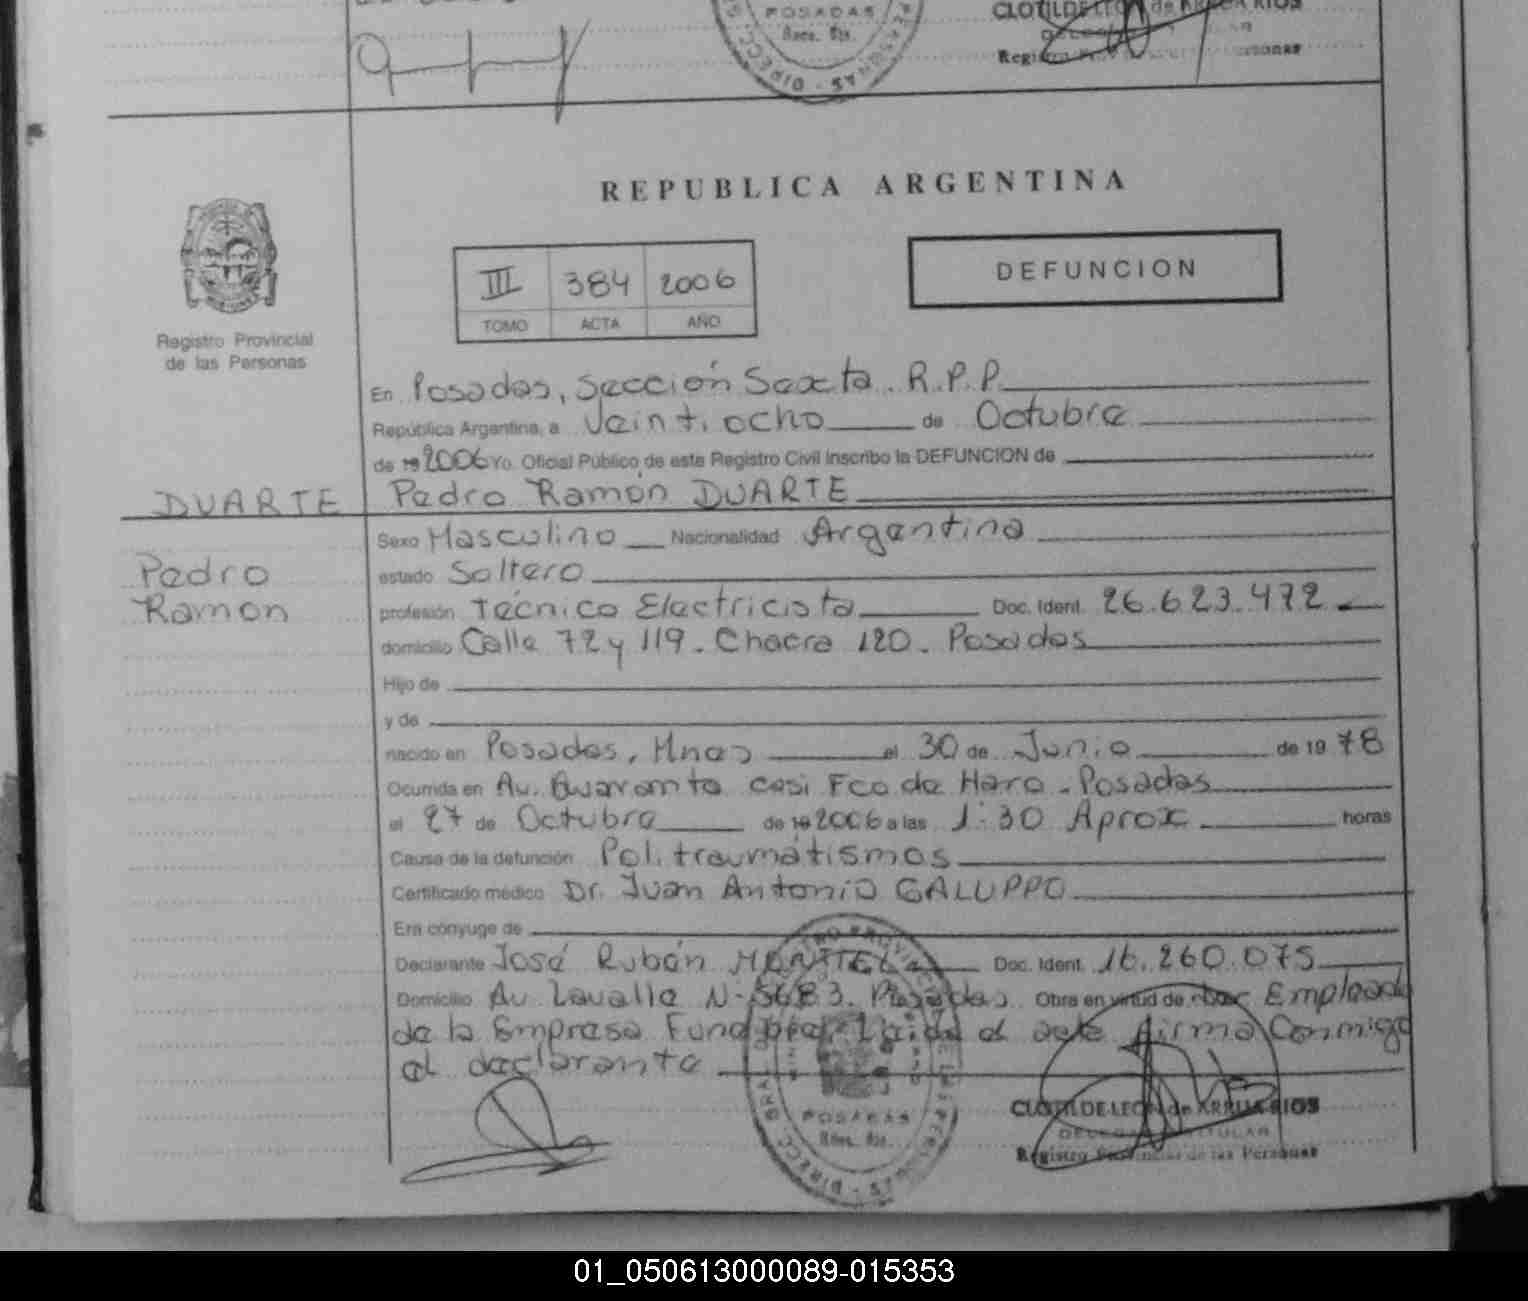 POSADAS
CLOTILDE LEON de ARRUA RIOS
REPUBLICA ARGENTINA
III 384 2006
TOMO ACTA AÑO
DEFUNCION
Registro Provincial
de las Personas
En Posadas, Sección Sexta. R.P.P.
República Argentina, a Veintiocho de Octubre
de 19 2006 Yo. Oficial Público de este Registro Civil inscribo la DEFUNCION de
DUARTE Pedro Ramón DUARTE
Sexo Masculino Nacionalidad Argentina
Pedro
estado Soltero
Ramon
profesión Técnico Electricista Doc. Ident. 26.623.472
domicilio Calle 72 y 119. Chacra 120. Posadas
Hijo de
y de
nacido en Posadas, Mnes el 30 de Junio de 19 78
Ocurrida en Av. casi Fco de Haro - Posadas
el 27 de Octubre de 19 2006 a las 1:30 Aprox horas
Causa de la defunción Politraumatismos
Certificado médico Dr. Juan Antonio GALUPPO
Era cónyuge de
Declarante José Rubén MONTIEL Doc. Ident. 16.260.075
Domicilio Av. Lavalle N- 5683. Posadas Obra en virtud de ser Empleado
de la Empresa Leida el acta firma Conmigo
el declarante
POSADAS
CLOTILDE LEON de ARRUA RIOS
DELEGADA TITULAR
Registro Provincial de las Personas
01_050613000089-015353